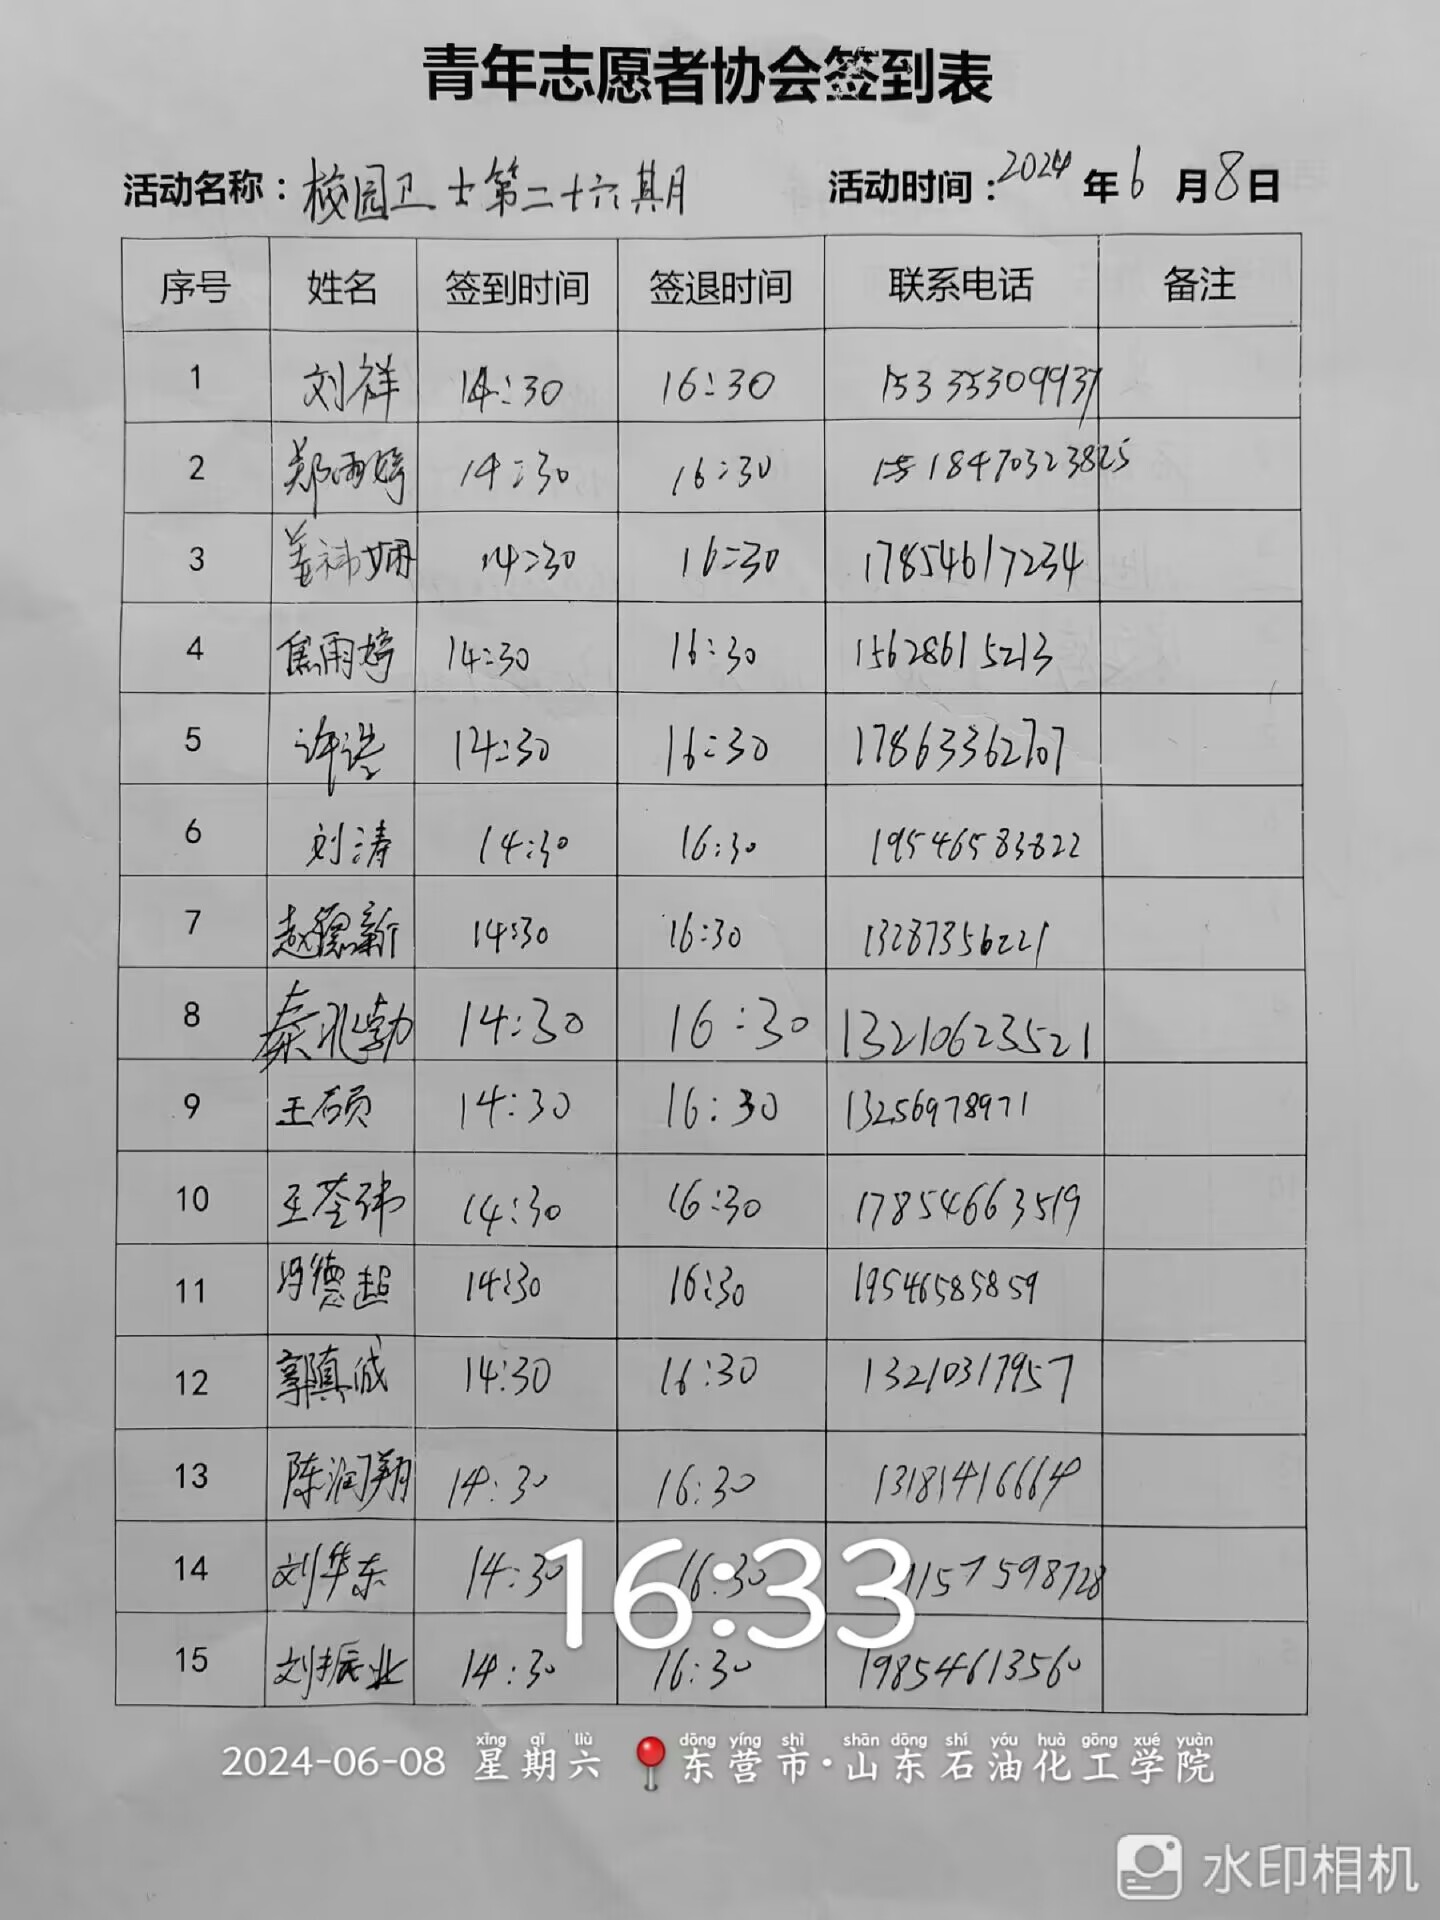 青年志愿者协会签到表
活动名称：校园卫士第二十六期 活动时间：2024年6月8日
序号 姓名 签到时间 签退时间 联系电话 备注
1 刘祥 14:30 16:30 15335309937
2 郑雨婷 14:30 16:30 18470323825
3 姜祎娜 14:30 16:30 17854617234
4 焦雨婷 14:30 16:30 15628615213
5 许浩 14:30 16:30 17863362707
6 刘涛 14:30 16:30 19546583822
7 赵德新 14:30 16:30 13287356221
8 秦兆勃 14:30 16:30 13210623521
9 王硕 14:30 16:30 13256978971
10 王荃伟 14:30 16:30 17854663519
11 冯德超 14:30 16:30 19546585859
12 郭真诚 14:30 16:30 13210317957
13 陈润翔 14:30 16:30 13181416664
14 刘华东 14:30 16:30
16:33
15 刘振业 14:30 16:30 19854613560
xīng qī liù dōng yíng shì shān dōng shí yóu huà gōng xué yuàn
2024-06-08 星期六 东营市·山东石油化工学院
水印相机